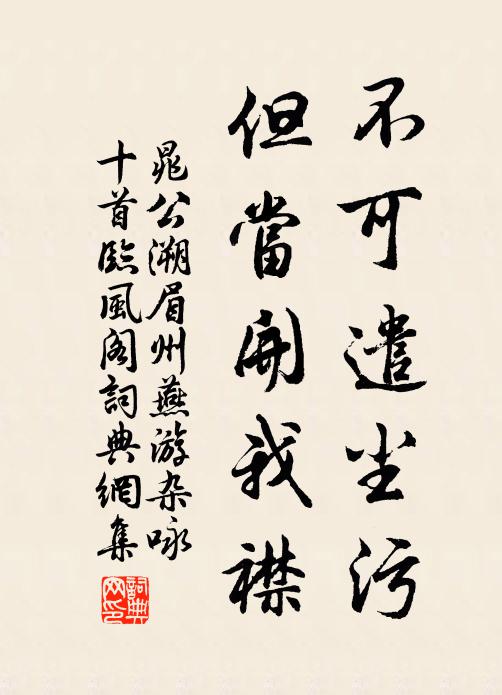 不可遣尘污
但當開我襟
晁公溯眉州燕游杂咏
十首臨風阁詞典網集
詞典
网印